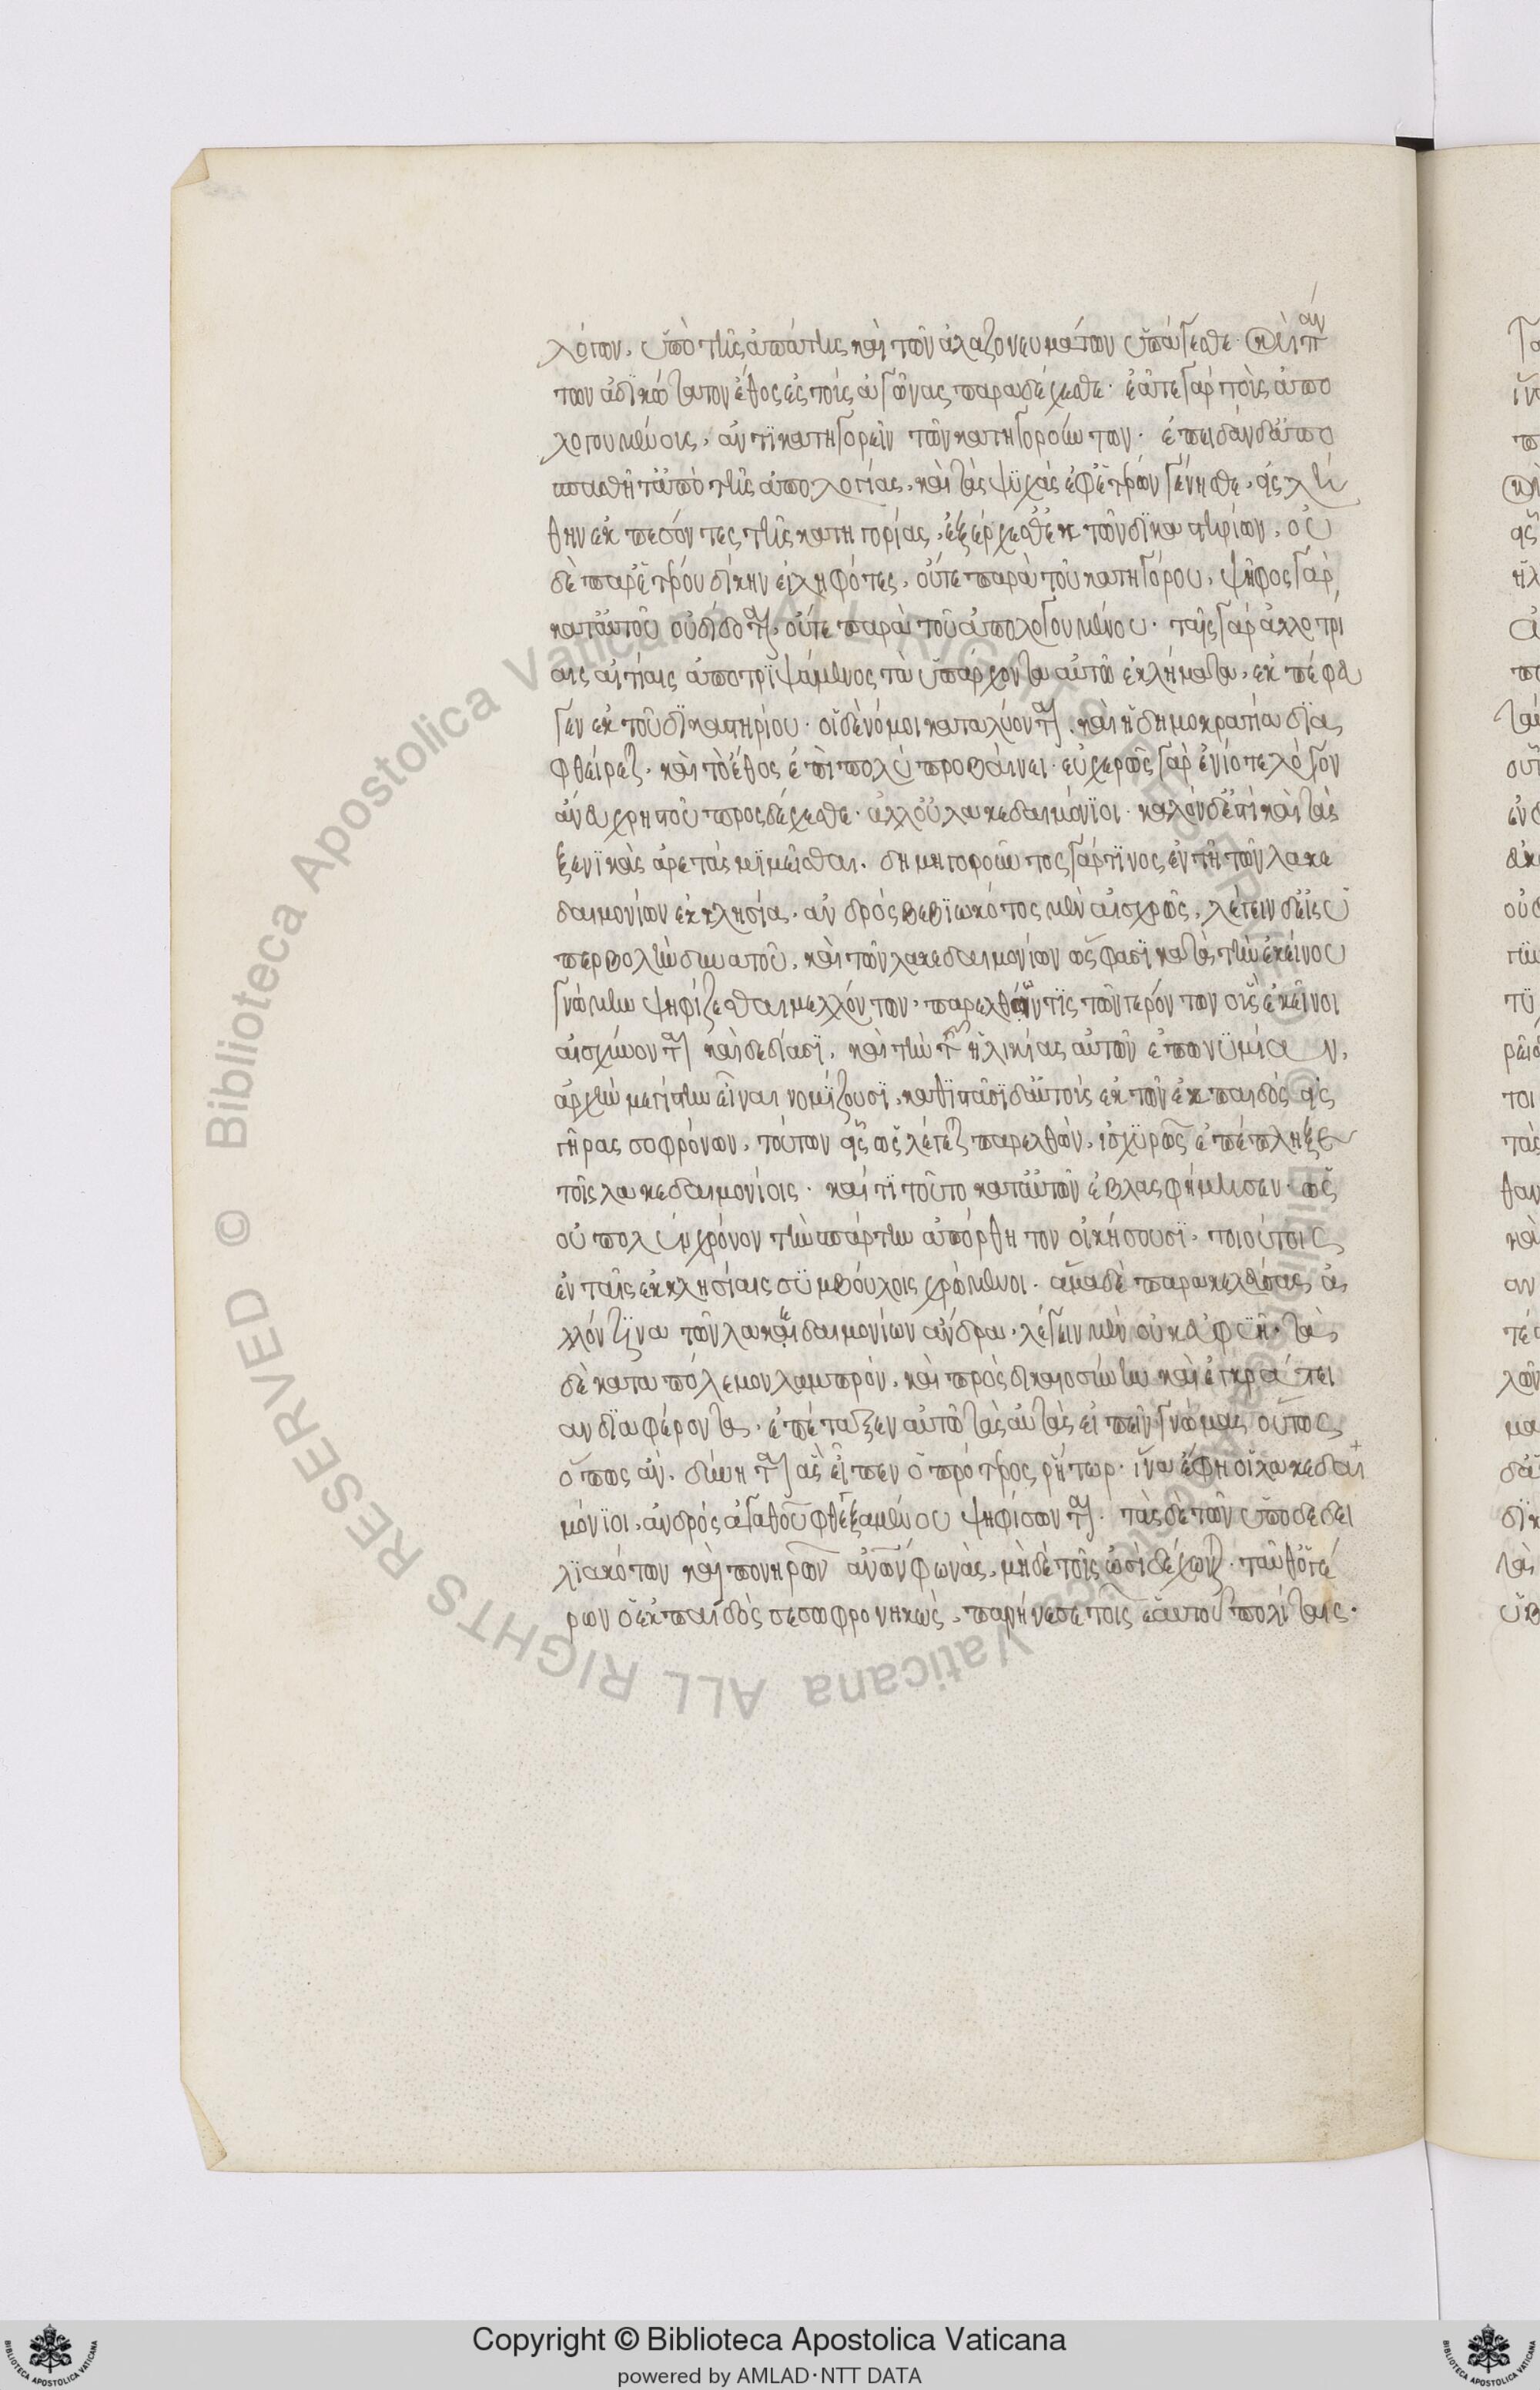 λόγων, ὑπὸ τῆς ἀπάτης καὶ τῶν ἀλαζονευμάτων ὑπάγεσθε· καὶ πάν
των ἀδικώτατον ἔθος εἰς τοὺς ἀγῶνας παραδέχεσθε· ἐᾶτε γὰρ τοὺς ἀπο
λογουμένοις, ἀντικατηγορεῖν τῶν κατηγορούντων· ἐπειδὰν δ' ἀπο
σπασθῆτ' ἀπὸ τῆς ἀπολογίας, καὶ τὰς ψυχὰς ἐφ' ἑτέρων γένησθε, εἰς λή
θην ἐκπεσόντες τῆς κατηγορίας, ἐξέρχεσθ' ἐκ τῶν δικαστηρίων, οὐ
δὲ παρ' ἑτέρου δίκην εἰληφότες, οὔτε παρὰ τοῦ κατηγόρου, ψῆφος γὰρ
κατ' αὐτοῦ οὐ δίδοται, οὔτε παρὰ τοῦ ἀπολογουμένου· ταῖς γὰρ ἀλλοτρί
αις αἰτίαις ἀποτριψάμενος τὰ ὑπάρχοντα αὐτῶ ἐκλήματα, ἐκπέφευ
γεν ἐκ τοῦ δικαστηρίου· οἱ δὲ νόμοι καταλύονται, καὶ ἡ δημοκρατία δια
φθείρεται, καὶ τὸ ἔθος ἐπὶ πολὺ προβαίνει· εὐχερῶς γὰρ ἐνίοτε λόγον
ἄνευ χρηστοῦ προσδέχεσθε· ἀλλ' οὐ λακεδαιμόνιοι· καλὸν δ' ἐστὶ καὶ τὰς
ξενικὰς ἀρετὰς μιμεῖσθαι. δημηγοροῦντος γάρ τινος ἐν τῆ τῶν λακε
δαιμονίων ἐκκλησία, ἀνδρὸς βεβιωκότος μὲν αἰσχρῶς, λέγειν δ' εἰς ὑ
περβολὴν δυνατοῦ, καὶ τῶν λακεδαιμονίων ὥς φασι κατὰ τὴν ἐκείνου
γνώμην ψηφίζεσθαι μελλόντων, παρελθών τις τῶν γερόντων οὓς ἐκεῖνοι
αἰσχύνονται καὶ δεδίασι, καὶ τὴν τῆς ἡλικίας αὐτῶν ἐπωνυμίαν,
ἀρχὴν μεγίστην εἶναι νομίζουσι, καθιστᾶσι δ' αὐτοὺς ἐκ τῶν ἐκ παιδὸς εἰς
γῆρας σωφρόνων, τούτων εἷς ὡς λέγεται παρελθὼν, ἰσχυρῶς ἐπέπληξε
τοῖς λακεδαιμονίοις· καί τι τοῦτο κατ' αὐτῶν ἐβλασφήμησεν· ὡς
οὐ πολὺν χρόνον τὴν σπάρτην ἀπόρθητον οἰκήσουσι, τοιούτοις
ἐν ταῖς ἐκκλησίαις συμβούλοις χρώμενοι· ἅμα δὲ παρακαλέσας ἄ
λλόν τινα τῶν λακεδαιμονίων ἄνδρα, λέγειν μὲν οὐκ εὐφυῆ, τὰ
δὲ κατὰ πόλεμον λαμπρὸν, καὶ πρὸς δικαιοσύνην καὶ ἐγκράτει
αν διαφέροντα, ἐπέταξεν αὐτῶ τὰς αὐτὰς εἰπεῖν γνώμας οὕτως
ὅπως ἂν δύνηται ἃς εἶπεν ὁ πρότερος ῥήτωρ· ἵνα ἔφη οἱ λακεδαι
μόνιοι, ἀνδρὸς ἀγαθοῦ φθεγξαμένου ψηφίσωνται· τὰς δὲ τῶν ἀποδεδει
λιακότων καὶ πονηρῶν ἀνων φωνὰς, μηδὲ τοῖς ὠσὶ δέχωνται. ταῦθ' ὁ γέ
ρων ὁ ἐκ παιδὸς σεσωφρονηκὼς, παρήνεσε τοῖς ἑαυτοῦ πολίταις·
Copyright © Biblioteca Apostolica Vaticana
powered by AMLAD·NTT DATA